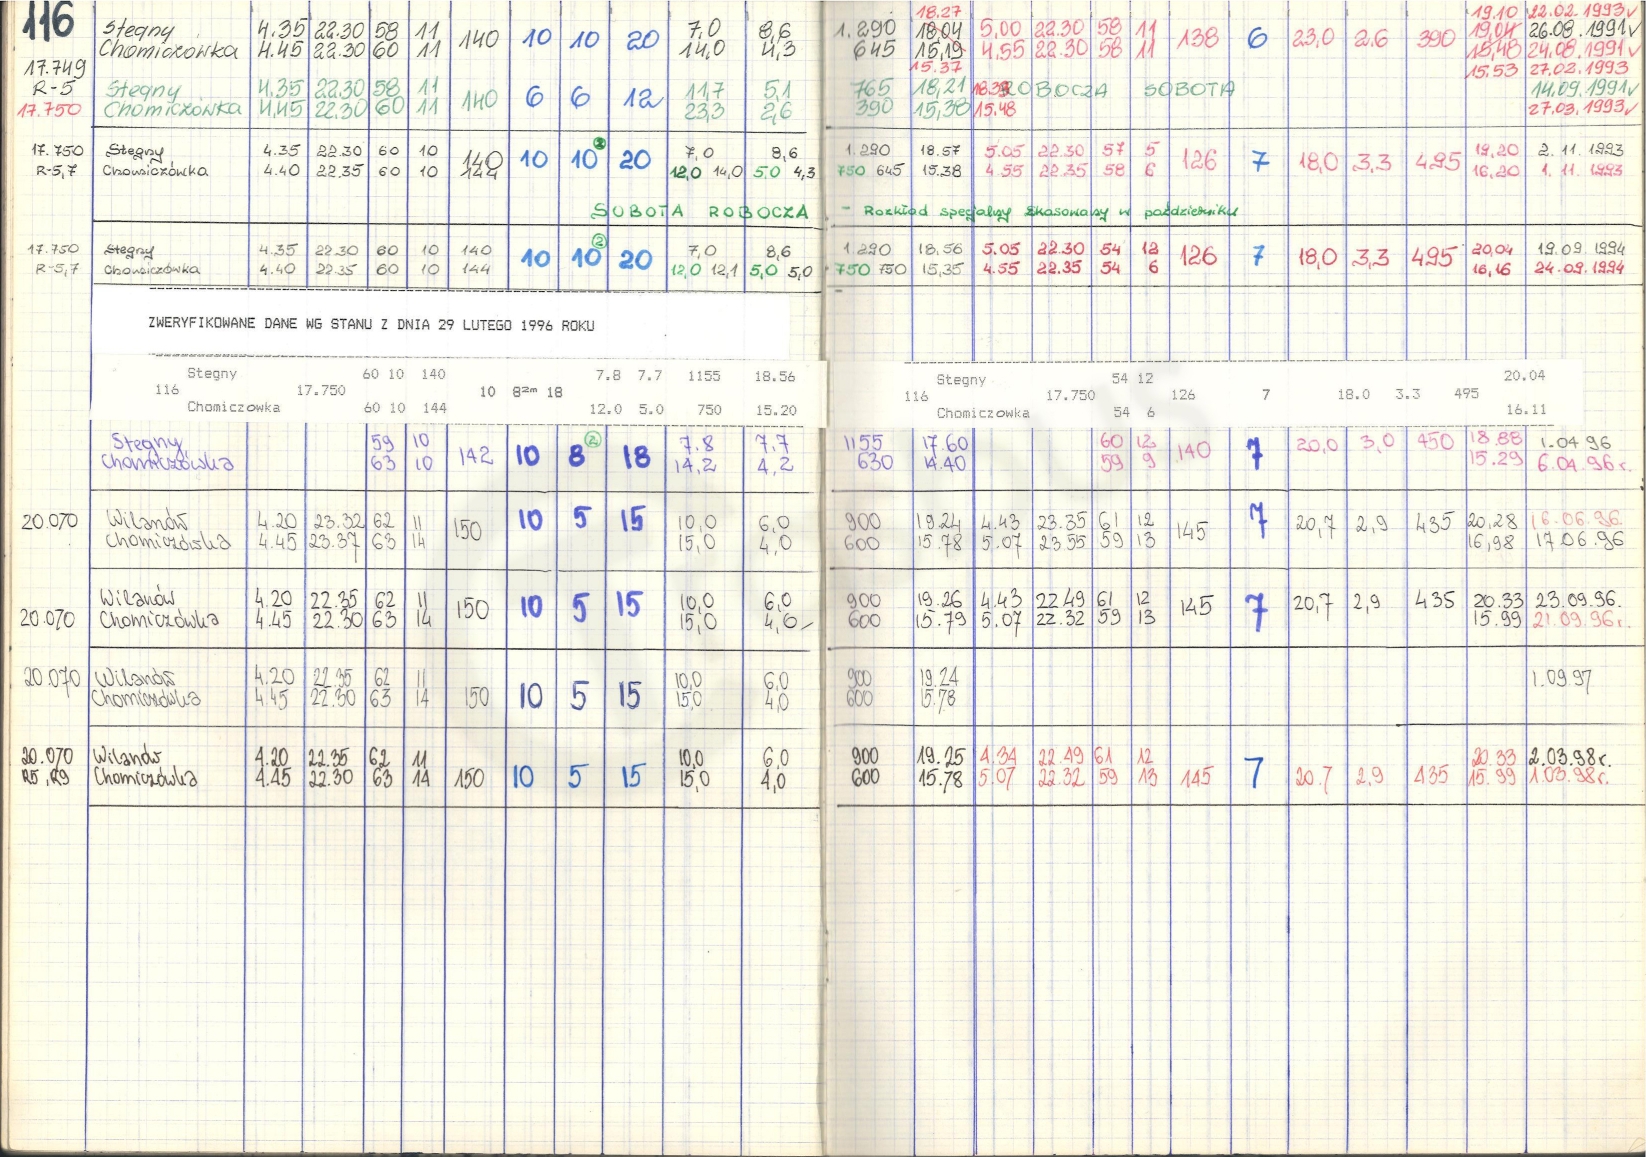 116 Stegny 4.35 22.30 58 11 140 10 10 20 7,0 8,6 1.290 18.27 18,04 5,00 22.30 58 11 138 6 23,0 2.6 390 19.10 19,04 22.02.1993 v 26.08.1991 v
Chomiczówka 4.45 22.30 60 11 14,0 4,3 645 15,19 15.37 4,55 22.30 58 11 15,48 15.53 24.08.1991 v 27.02.1993
17.749
R-5 Stegny 4.35 22.30 58 11 140 6 6 12 11,7 5,1 765 18,21 ROBOCZA SOBOTA 14.09.1991 v
17.750 Chomiczówka 4,45 22.30 60 11 23,3 2,6 390 15,38 15.48 27.03.1993 v
17.750 Stegny 4.35 22.30 60 10 140 10 10 2 20 7,0 8,6 1.290 18.57 5.05 22.30 57 5 126 7 18,0 3,3 495 19,20 2.11.1993
R-5,7 Chomiczówka 4.40 22.35 60 10 144 12,0 14,0 5,0 4,3 750 645 15.38 4.55 22.35 58 6 16,20 1.11.1993
SOBOTA ROBOCZA - Rozkład specjalny skasowany w październiku
17.750 Stegny 4.35 22.30 60 10 140 10 10 2 20 7,0 8,6 1.290 18,56 5.05 22.30 54 12 126 7 18,0 3,3 495 20,04 19.09.1994
R-5,7 Chomiczówka 4.40 22.35 60 10 144 12,0 12,1 5,0 5,0 750 750 15,35 4.55 22.35 54 6 16,16 24.09.1994
ZWERYFIKOWANE DANE WG STANU Z DNIA 29 LUTEGO 1996 ROKU
Stegny 60 10 140 7.8 7.7 1155 18.56 Stegny 54 12 20.04
116 17.750 10 8²ᵐ 18 116 17.750 126 7 18.0 3.3 495
Chomiczowka 60 10 144 12.0 5.0 750 15.20 Chomiczowka 54 6 16.11
Stegny 59 10 142 10 8 2 18 7.8 7.7 1155 17.60 60 12 140 7 20,0 3,0 450 18.88 1.04 96
Chomiczówka 63 10 14,2 4,2 630 14.40 59 9 15.29 6.04.96 r.
20.070 Wilanów 4.20 23.32 62 11 150 10 5 15 10,0 6,0 900 19.24 4.43 23.35 61 12 145 7 20,7 2,9 435 20,28 16.06.96.
Chomiczówka 4.45 23.37 63 14 15,0 4,0 600 15.78 5.07 23.55 59 13 16,98 17.06.96
Wilanów 4.20 22.35 62 11 150 10 5 15 10,0 6,0 900 19.26 4.43 22.49 61 12 145 7 20,7 2,9 435 20.33 23.09.96.
20.070 Chomiczówka 4.45 22.30 63 14 15,0 4,0 600 15.79 5.07 22.32 59 13 15.99 21.09.96 r.
20.070 Wilanów 4.20 22.35 62 11 150 10 5 15 10,0 6,0 900 19.24 1.09.97
Chomiczówka 4.45 22.30 63 14 15,0 4,0 600 15.78
20.070 Wilanów 4.20 22.35 62 11 150 10 5 15 10,0 6,0 900 19.25 4.34 22.49 61 12 145 7 20.7 2,9 435 20.33 2.03.98 r.
R5, R9 Chomiczówka 4.45 22.30 63 14 15,0 4,0 600 15.78 5.07 22.32 59 13 15.99 1.03.98 r.